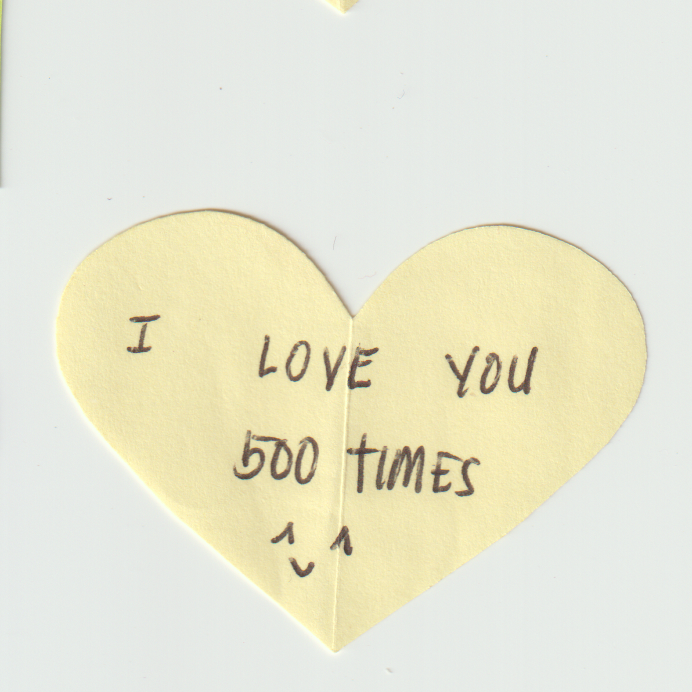 I LOVE YOU
500 TIMES